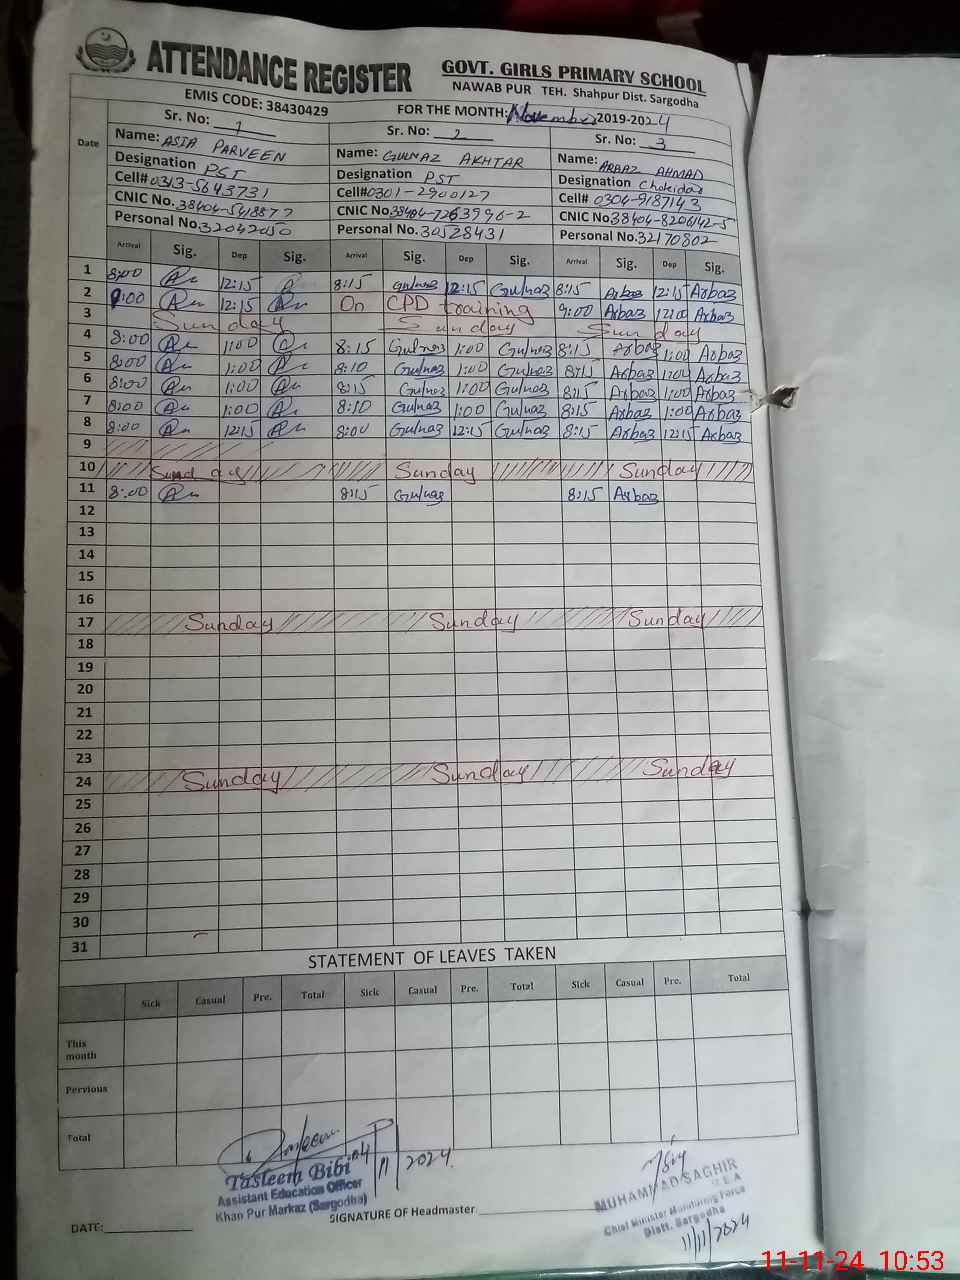 ATTENDANCE REGISTER
GOVT. GIRLS PRIMARY SCHOOL
NAWAB PUR TEH. Shahpur Dist. Sargodha
EMIS CODE: 38430429
FOR THE MONTH: November 2019-2024
Date Sr. No: 1 Sr. No: 2 Sr. No: 3
Name: ASIA PARVEEN Name: GULNAZ AKHTAR Name: ARBAZ AHMAD
Designation PST Designation PST Designation Chokidar
Cell# 0313-5643731 Cell# 0301-2900127 Cell# 0304-9187143
CNIC No. CNIC No. CNIC No. 38404-8206142-5
Personal No. 32042050 Personal No. 30528431 Personal No. 32170802
Arrival Sig. Dep Sig. Arrival Sig. Dep Sig. Arrival Sig. Dep Sig.
1 8:00 12:15 8:15 Gulnaz 12:15 Gulnaz 8:15 Arbaz 12:15 Arbaz
2 9:00 12:15 On CPD training 9:00 Arbaz Arbaz
3 Sunday Sunday Sunday
4 8:00 1:00 8:15 Gulnaz 1:00 Gulnaz 8:15 Arbaz 1:00 Arbaz
5 8:00 1:00 8:10 Gulnaz 1:00 Gulnaz 8:15 Arbaz 1:00 Arbaz
6 8:00 1:00 8:15 Gulnaz 1:00 Gulnaz 8:15 Arbaz 1:00 Arbaz
7 8:00 1:00 8:10 Gulnaz 1:00 Gulnaz 8:15 Arbaz 1:00 Arbaz
8 8:00 12:15 8:00 Gulnaz 12:15 Gulnaz 8:15 Arbaz 12:15 Arbaz
9
10 Sunday Sunday Sunday
11 8:00 8:15 Gulnaz 8:15 Arbaz
12
13
14
15
16
17 Sunday Sunday Sunday
18
19
20
21
22
23
24 Sunday Sunday Sunday
25
26
27
28
29
30
31
STATEMENT OF LEAVES TAKEN
Sick Casual Pre. Total Sick Casual Pre. Total Sick Casual Pre. Total
This
month
Pervious
Total
Tasleem
Tasleem Bibi 04/11/2024
Assistant Education Officer
Khan Pur Markaz (Sargodha)
MUHAMMAD SAGHIR
M.E.A
Chief Minister Monitoring Force
Distt. Sargodha
11/11/2024
DATE: SIGNATURE OF Headmaster
11-11-24 10:53